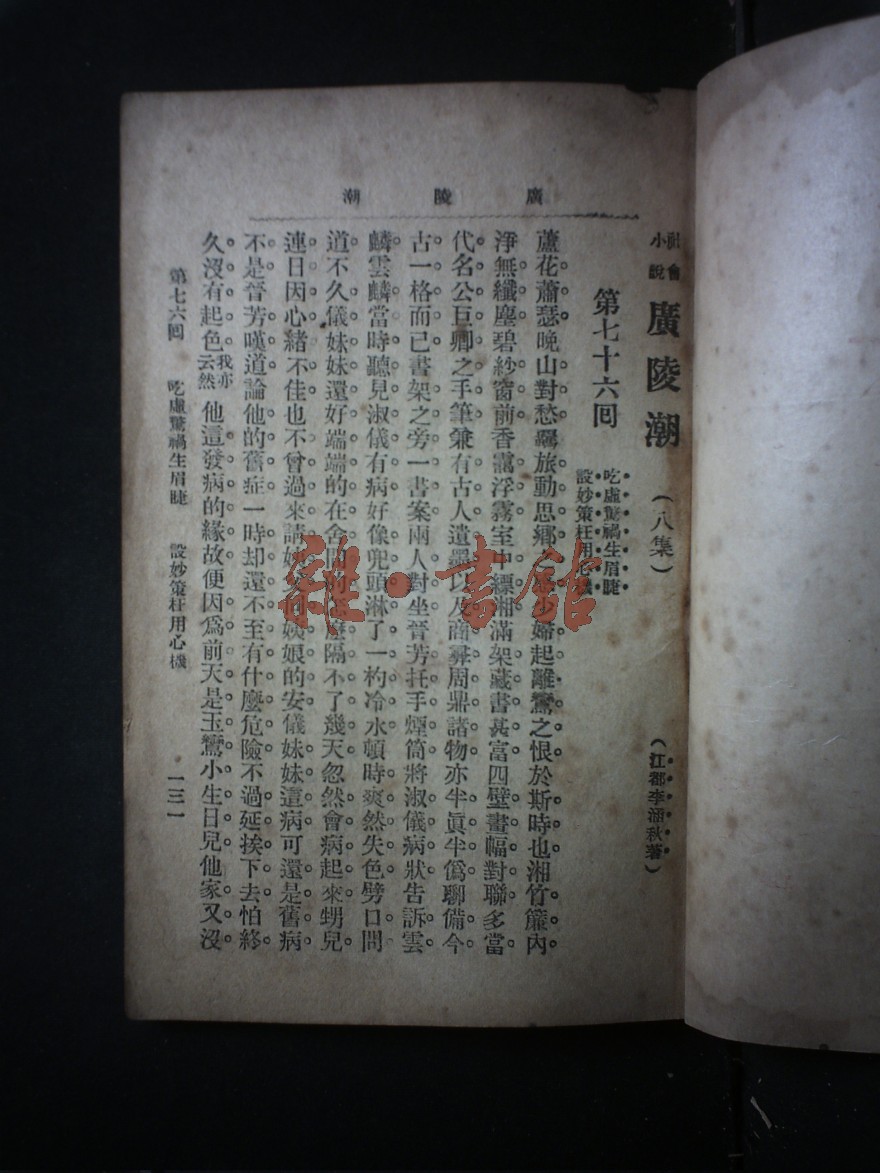 廣陵潮
社會小說 廣陵潮 （八集） （江都李涵秋著）
第七十六回 吃虛驚禍生眉睫 設妙策枉用心機
蘆花蕭瑟晚山對愁羈旅動思鄉之 少婦起離鸞之恨於斯時也湘竹簾內
淨無纖塵碧紗窗前香靄浮霧室中縹緗滿架藏書甚富四壁畫幅對聯多當
代名公巨卿之手筆兼有古人遺墨以及商彝周鼎諸物亦半眞半僞聊備今
古一格而已書架之旁一書案兩人對坐晉芳托手煙筒將淑儀病狀告訴雲
麟雲麟當時聽見淑儀有病好像兜頭淋了一杓冷水頓時爽然失色劈口問
道不久儀妹妹還好端端的在舍間的怎麼隔不了幾天忽然會病起來甥兒
連日因心緒不佳也不曾過來請姨父 姨娘的安儀妹妹這病可還是舊病
不是晉芳嘆道論他的舊症一時却還不至有什麼危險不過延挨下去怕終
久沒有起色我亦云然他這發病的緣故便因爲前天是玉鸞小生日兒他家又沒
第七六回 吃虛驚禍生眉睫 設妙策枉用心機 一三一
雜·書館